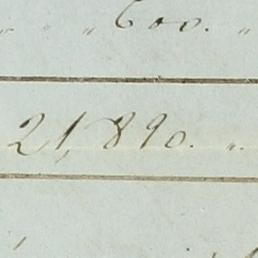 " " 600. "
21,890. "